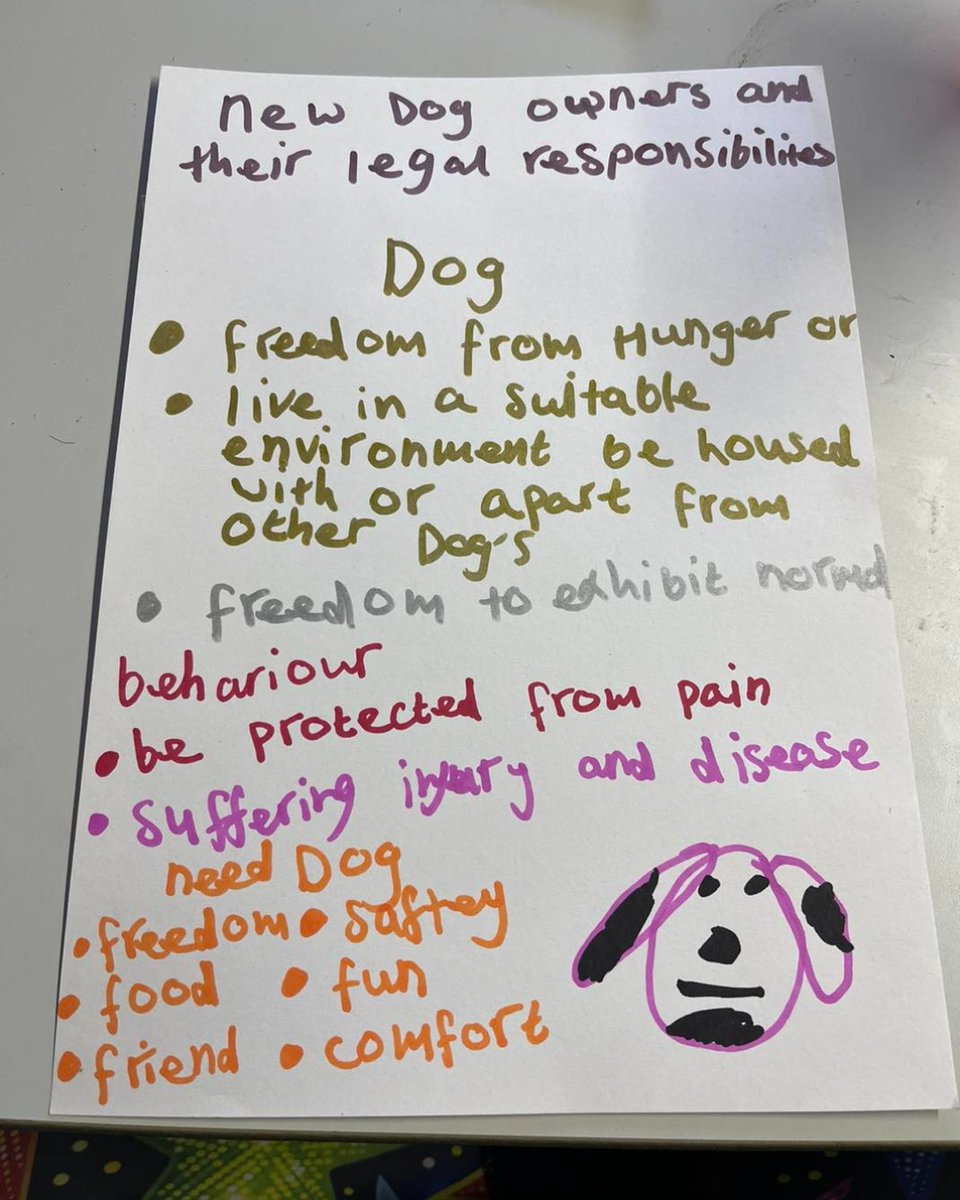 new Dog owners and
their legal responsibilites
Dog
• freedom from Hunger or
• live in a suitable
environment be housed
with or apart from
other Dog's
• freedom to exhibit normal
behaviour
• be protected from pain
• suffering injury and disease
need Dog
• freedom • saftey
• food • fun
• friend • comfort